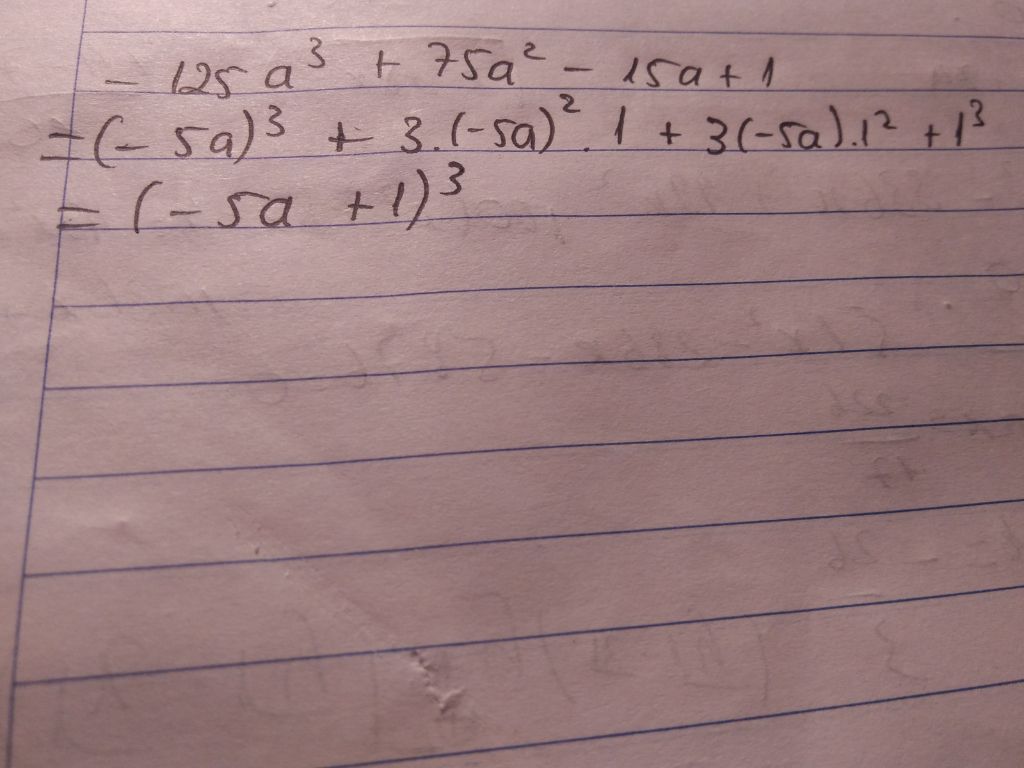 - 125a³ + 75a² - 15a + 1
= (- 5a)³ + 3.(-5a)².1 + 3(-5a).1² + 1³
= (- 5a + 1)³